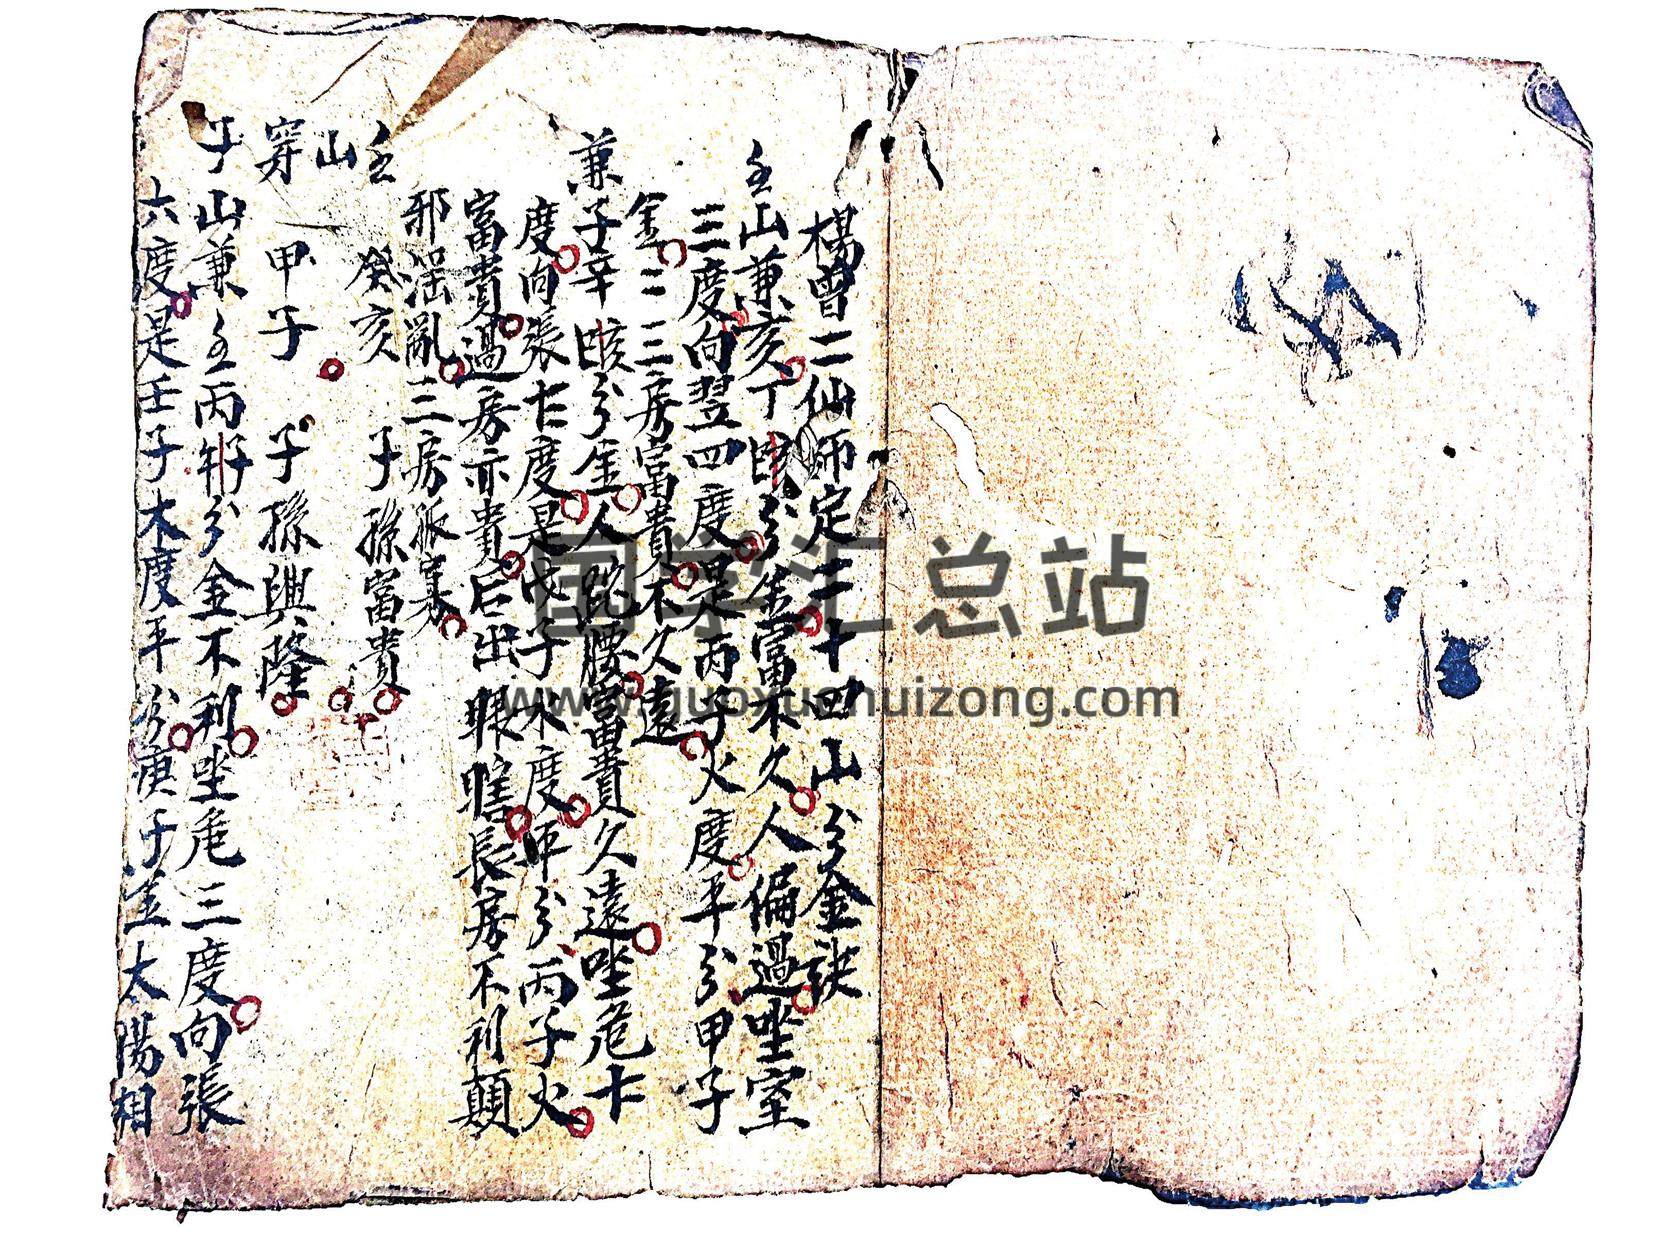 楊曾二仙師定二十四山分金訣
壬山兼亥丁分金富不久人偏過坐室
三度向翌四度是丙子火度平分甲子
金二三房富貴不久遠
兼子辛分金人腰富貴久遠坐危七
度向張七度是戊子木度平分丙子火
富貴過房亦貴后出眼瞎長房不利顛
邪淫亂三房孤寡
壬 癸亥 子孫富貴
山
穿 甲子 子孫興隆
子山兼壬丙分金不利坐危三度向張
六度是壬子木度平分庚子金太陽相
国学汇总站
www.guoxuehuizong.com